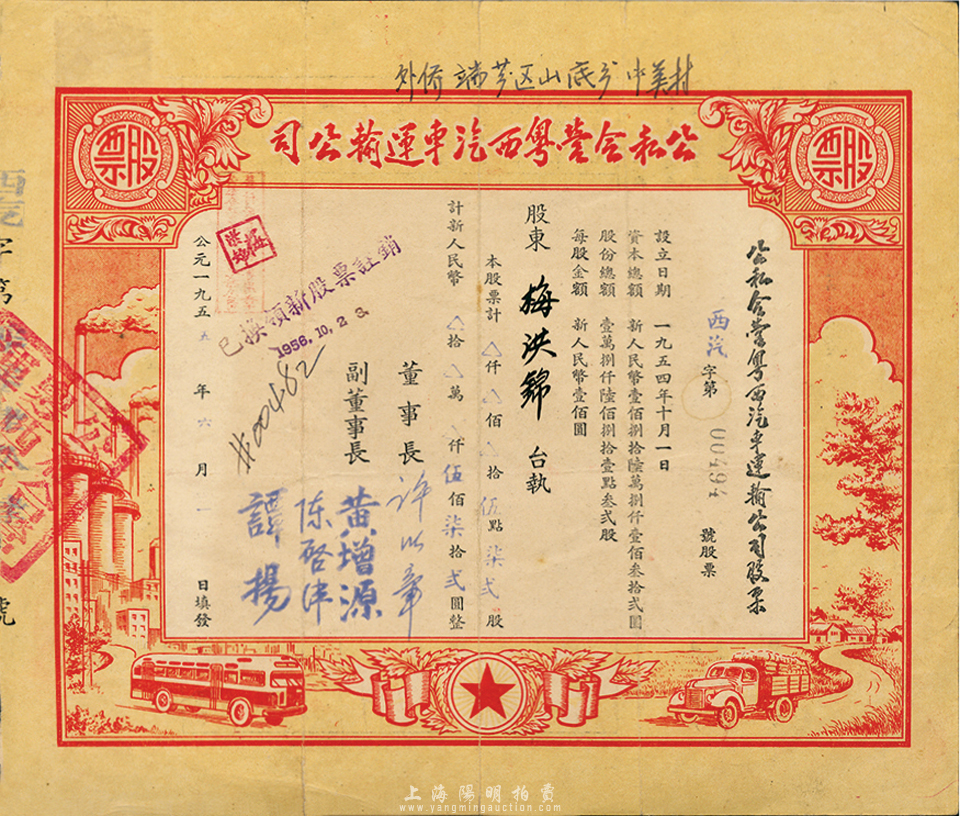 外侨 端芬区山底乡中美村
股票
公私合營粵西汽車運輸公司
股票
公私合營粵西汽車運輸公司股票
西汽 字第 00494 號股票
設立日期 一九五四年十月一日
資本總額 新人民幣壹佰捌拾陸萬捌仟壹佰叁拾弍圓
股份總額 壹萬捌仟陸佰捌拾壹點叁弍股
每股金額 新人民幣壹佰圓
股東 梅洪錦 台執
本股票計 △仟△佰△拾伍點柒弍股
計新人民幣 △拾△萬 仟伍佰柒拾弍圓整
董事長 許以章
副董事長 黄增源
陈啓津
譚揚
#00482
已換領新股票註銷
1956.10.2
公元一九五五年六月一日填發
西汽字第
號
上海陽明拍賣
www.yangmingauction.com